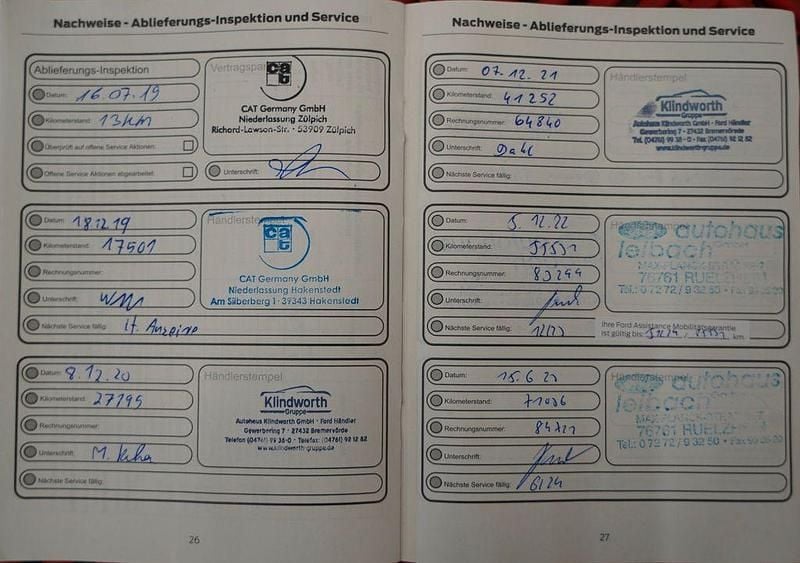 Nachweise - Ablieferungs-Inspektion und Service
Ablieferungs-Inspektion
Datum: 16.07.19
Kilometerstand: 13km
Überprüft auf offene Service Aktionen:
Offene Service Aktionen abgearbeitet:
Vertragspar
cat
CAT Germany GmbH
Niederlassung Zülpich
Richard-Lawson-Str. · 53909 Zülpich
Unterschrift:
Datum: 18.12.19
Kilometerstand: 17501
Rechnungsnummer:
Unterschrift:
Nächste Service fällig: lt. Anzeige
Händlerstempel
cat
CAT Germany GmbH
Niederlassung Hakenstedt
Am Silberberg 1 · 39343 Hakenstedt
Datum: 8.12.20
Kilometerstand: 27195
Rechnungsnummer:
Unterschrift: M.
Nächste Service fällig:
Händlerstempel
Klindworth
Gruppe
Autohaus Klindworth GmbH · Ford Händler
Gewerbering 7 · 27432 Bremervörde
Telefon (04761) 99 38-0 · Telefax: (04761) 92 12 82
www.klindworth-gruppe.de
26
Nachweise - Ablieferungs-Inspektion und Service
Datum: 07.12.21
Kilometerstand: 41252
Rechnungsnummer: 64840
Unterschrift: Dahl
Nächste Service fällig:
Händlerstempel
Klindworth
Gruppe
Autohaus Klindworth GmbH · Ford Händler
Gewerbering 7 · 27432 Bremervörde
www.klindworth-gruppe.de
Datum: 5.12.22
Kilometerstand:
Rechnungsnummer: 83244
Unterschrift:
Nächste Service fällig: 12/23
autohaus
leibach
76761
Tel.: 0 72 72 / 9 32 50
Ihre Ford Assistance Mobilitätsgarantie
ist gültig bis: km
Datum: 15.6.23
Kilometerstand: 71036
Rechnungsnummer:
Unterschrift:
Nächste Service fällig: 6/24
autohaus
leibach
76761
Tel.: 0 72 72 / 9 32 50
27